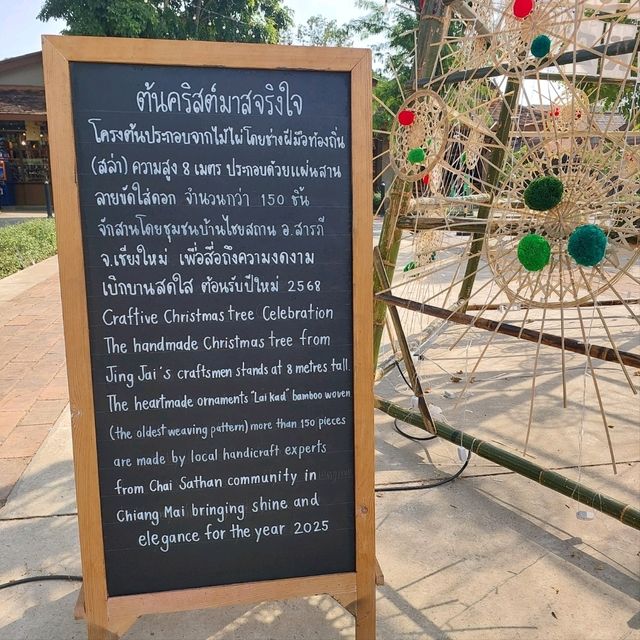 ต้นคริสต์มาสจริงใจ
โครงต้นประกอบจากไม้ไผ่โดยช่างฝีมือท้องถิ่น
(สล่า) ความสูง 8 เมตร ประกอบด้วยแผ่นสาน
ลายขัดใส่ดอก จำนวนกว่า 150 ชิ้น
จักสานโดยชุมชนบ้านไชยสถาน อ.สารภี
จ.เชียงใหม่ เพื่อสื่อถึงความงดงาม
เบิกบานสดใส ต้อนรับปีใหม่ 2568
Craftive Christmas tree Celebration
The handmade Christmas tree from
Jing Jai's craftsmen stands at 8 metres tall.
The heartmade ornaments "Lai Kad" bamboo woven
(the oldest weaving pattern) more than 150 pieces
are made by local handicraft experts
from Chai Sathan community in
Chiang Mai bringing shine and
elegance for the year 2025